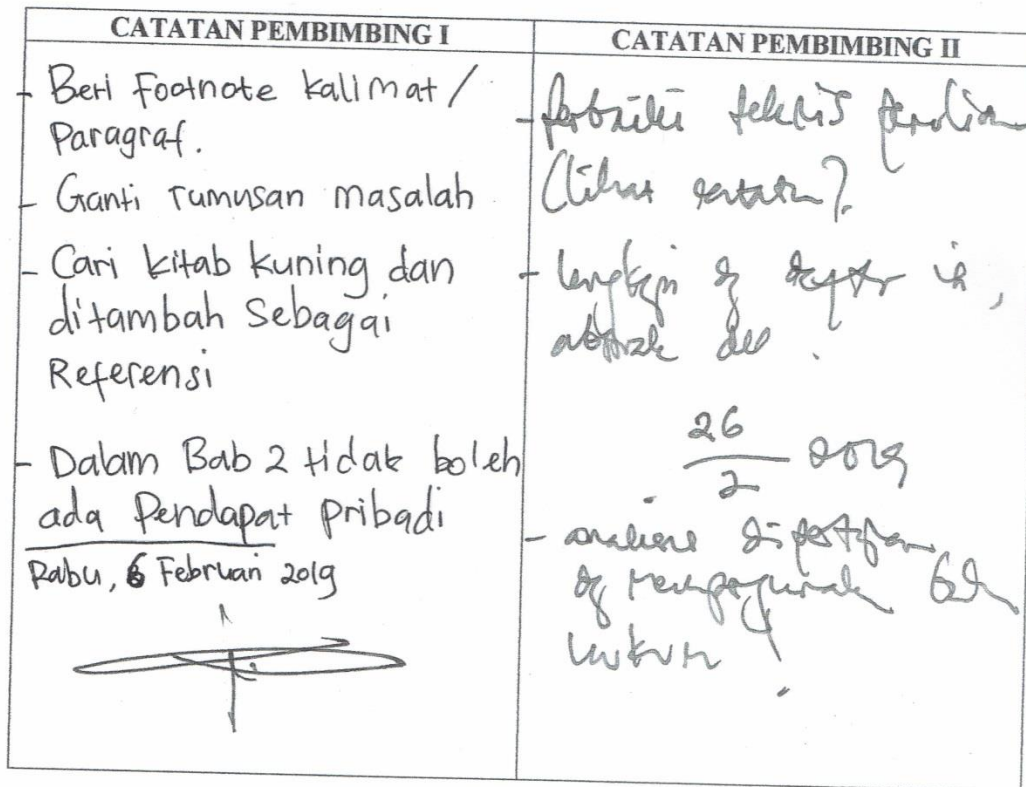 CATATAN PEMBIMBING I
- Beri Footnote kalimat /
Paragraf.
- Ganti rumusan masalah
- Cari kitab kuning dan
ditambah Sebagai
Referensi
- Dalam Bab 2 tidak boleh
ada Pendapat pribadi
Rabu, 6 Februari 2019
CATATAN PEMBIMBING II
- perbaiki teknis
(lihat catatan).
- lengkapi dg daftar isi,
abstrak dll.
26/2 2019
- analisis dipertajam
dg